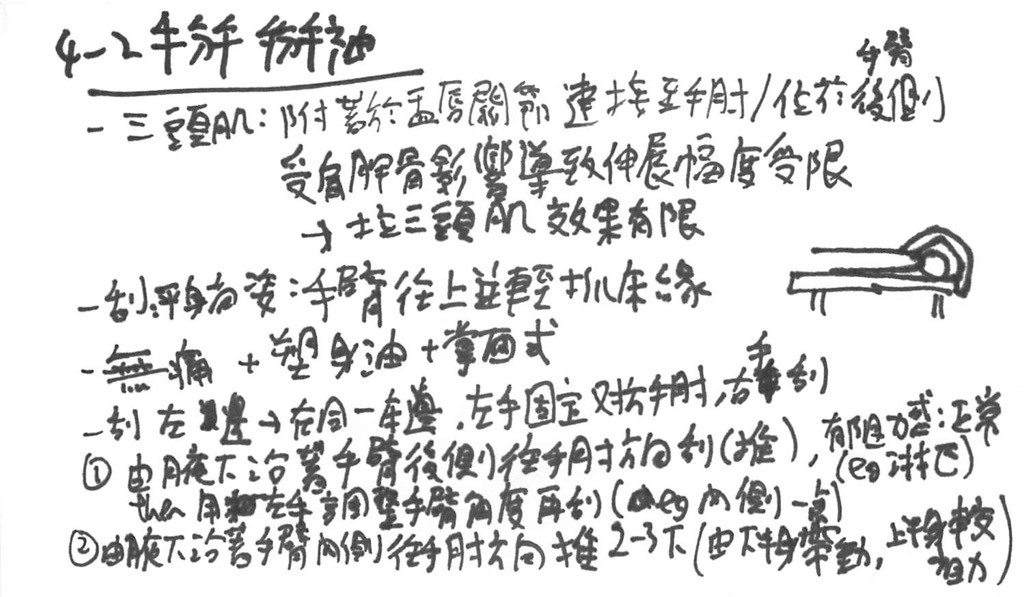 4-2 手部 掰油
手臂
- 三頭肌：附著於盂唇關節 連接至手肘/位於後側
受肩胛骨影響導致伸展幅度受限
→ 拉三頭肌 效果有限
- 刮痧身體姿：手臂往上並輕抓床緣
- 無痛 + 塑身油 + 掌面式
- 刮左邊→在同一邊，左手固定對方手肘，右手刮
① 由腋下沿著手臂後側往手肘方向刮(推)，有阻力感：正常 (eg 淋巴)
then 用左手調整手臂角度再刮(eg 內側一點)
② 由腋下沿著手臂內側往手肘方向推 2-3下 (由下半身帶動，上半身較 阻力)